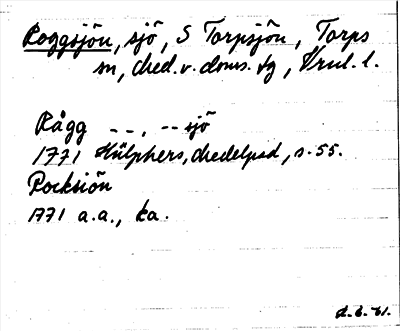 Roggsjön, sjö, S Torpsjön, Torps
sn, Med. v. doms. tg,
Rågg --, --sjö
1771 Hülphers, Medelpad, s. 55.
Rocksiön
1771 a.a., ka.